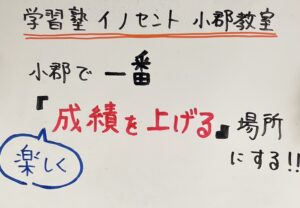 学習塾イノセント 小郡教室
小郡で一番
『成績を上げる』場所
楽しく
にする!!